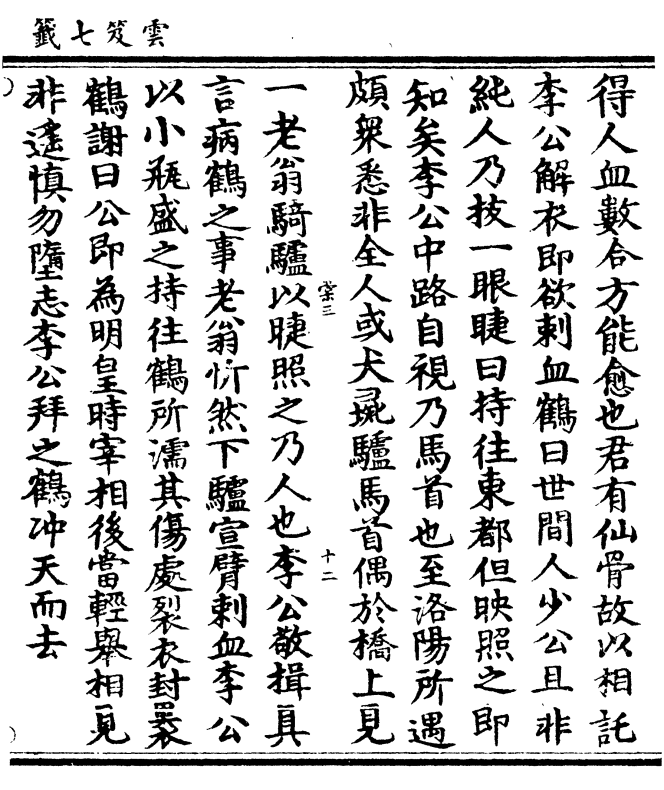 雲笈七籤
得人血數合方能愈也君有仙骨故以相託
李公解衣即欲刺血鶴曰世間人少公且非
純人乃拔一眼睫曰持往東都但映照之即
知矣李公中路自視乃馬首也至洛陽所遇
頗衆悉非全人或犬彘驢馬首偶於橋上見
棠三
十二
一老翁騎驢以睫照之乃人也李公敬揖具
言病鶴之事老翁忻然下驢宣臂刺血李公
以小瓶盛之持往鶴所濡其傷處裂衣封裹
鶴謝曰公即為明皇時宰相後當輕舉相見
非遙慎勿墮志李公拜之鶴冲天而去